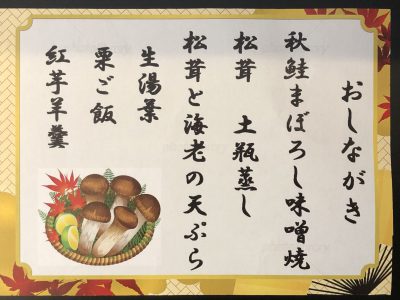 おしながき
秋鮭まぼろし味噌焼
松茸　土瓶蒸し
松茸と海老の天ぷら
生湯葉
栗ご飯
紅芋羊羹